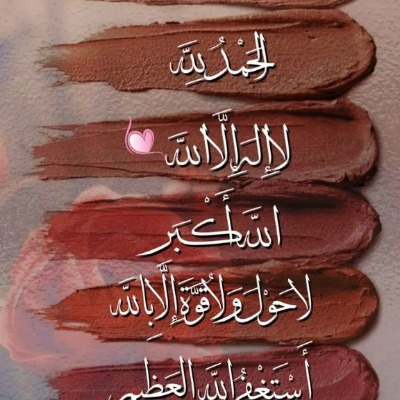 الحَمْدُ لِلَّهِ
لا إله إلَّا اللَّه
اللَّه أَكْبَر
لا حَوْلَ وَلا قُوَّةَ إِلَّا بِاللَّه
أَسْتَغْفِرُ اللَّه العَظِيم